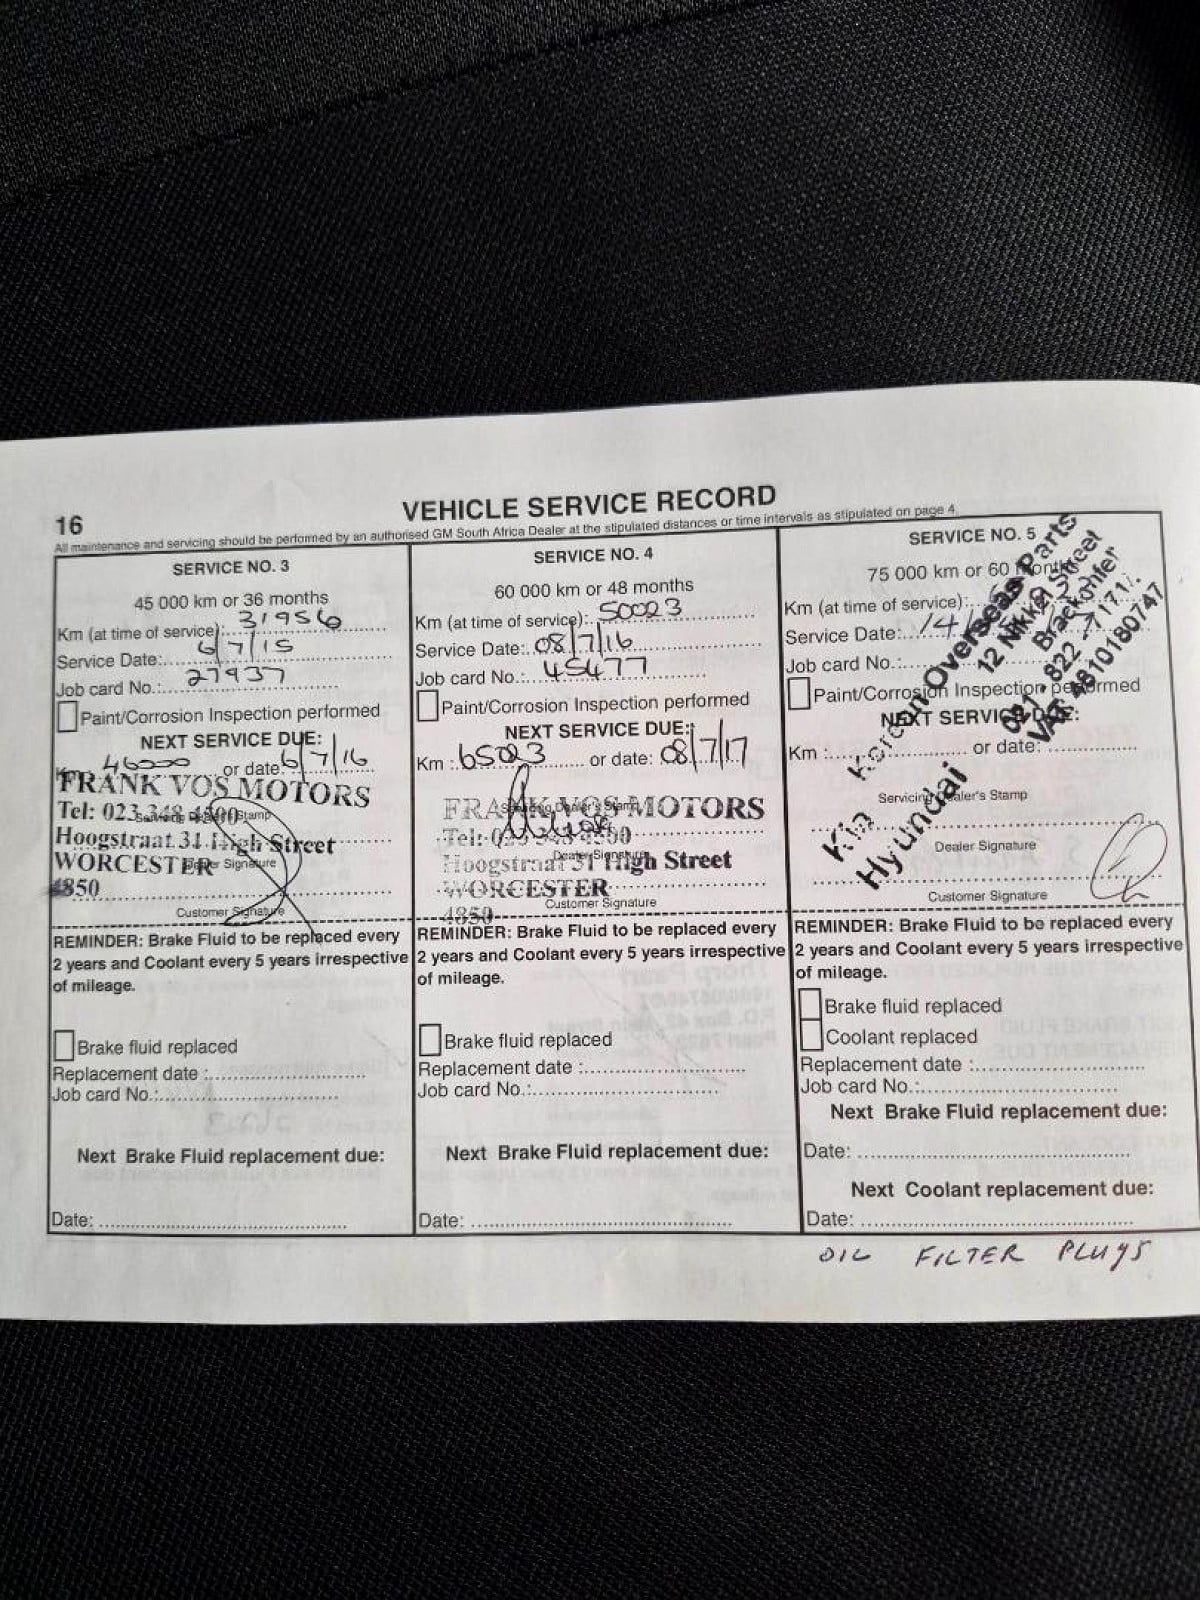 16
VEHICLE SERVICE RECORD
All maintenance and servicing should be performed by an authorised GM South Africa Dealer at the stipulated distances or time intervals as stipulated on page 4.
SERVICE NO. 3
45 000 km or 36 months
Km (at time of service): 31956
Service Date: 6/7/15
Job card No.: 27937
Paint/Corrosion Inspection performed
NEXT SERVICE DUE:
46000 or date: 6/7/16
FRANK VOS MOTORS
Tel: 023 348 4500
Servicing Dealer's Stamp
Hoogstraat 31 High Street
WORCESTER
Dealer Signature
4850
Customer Signature
REMINDER: Brake Fluid to be replaced every
2 years and Coolant every 5 years irrespective
of mileage.
Brake fluid replaced
Replacement date :
Job card No.:
Next Brake Fluid replacement due:
Date:
SERVICE NO. 4
60 000 km or 48 months
Km (at time of service): 50023
Service Date: 08/7/16
Job card No.: 45477
Paint/Corrosion Inspection performed
NEXT SERVICE DUE:
Km : 65023 or date: 08/7/17
FRANK VOS MOTORS
Servicing Dealer's Stamp
Tel: 023 348 4500
Hoogstraat 31 High Street
Dealer Signature
WORCESTER
Customer Signature
4850
REMINDER: Brake Fluid to be replaced every
2 years and Coolant every 5 years irrespective
of mileage.
Brake fluid replaced
Replacement date :
Job card No.:
Next Brake Fluid replacement due:
Date:
SERVICE NO. 5
75 000 km or 60 months
Km (at time of service):
Service Date: 14/
Job card No.:
Paint/Corrosion Inspection performed
NEXT SERVICE DUE:
Km : or date:
Servicing Dealer's Stamp
Dealer Signature
Customer Signature
Kia Korean Overseas Parts
Hyundai 12 Nikkel Street
Brackenfer
021 822 7171/
VAT 4810180747
REMINDER: Brake Fluid to be replaced every
2 years and Coolant every 5 years irrespective
of mileage.
Brake fluid replaced
Coolant replaced
Replacement date :
Job card No.:
Next Brake Fluid replacement due:
Date:
Next Coolant replacement due:
Date:
OIL FILTER PLUGS